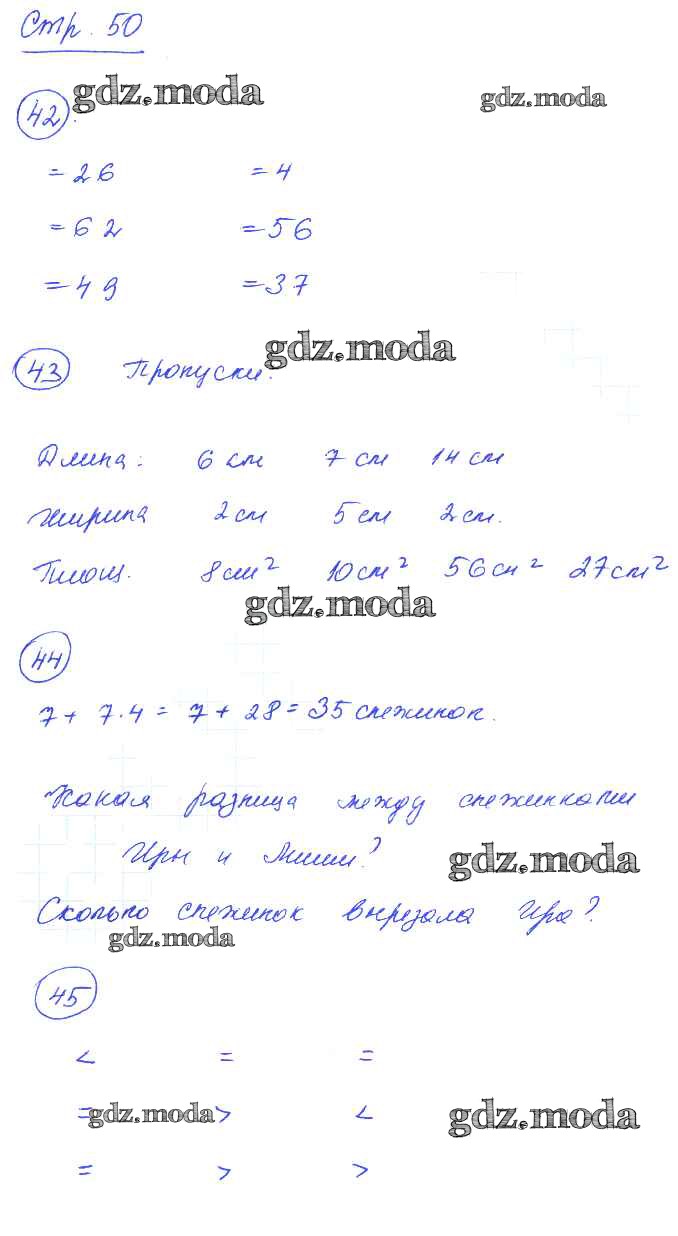 Стр. 50
gdz.moda
gdz.moda
42.
= 26 = 4
= 62 = 56
= 49 = 37
gdz.moda
43 Пропуски.
Длина: 6 см 7 см 14 см
Ширина 2 см 5 см 2 см.
Площ. 8 см² 10 см² 56 см² 27 см²
gdz.moda
44
7 + 7·4 = 7 + 28 = 35 снежинок.
Какая разница между снежинками
Иры и Миши?
gdz.moda
Сколько снежинок вырезала Ира?
gdz.moda
45
< = =
= > <
gdz.moda
gdz.moda
= > >